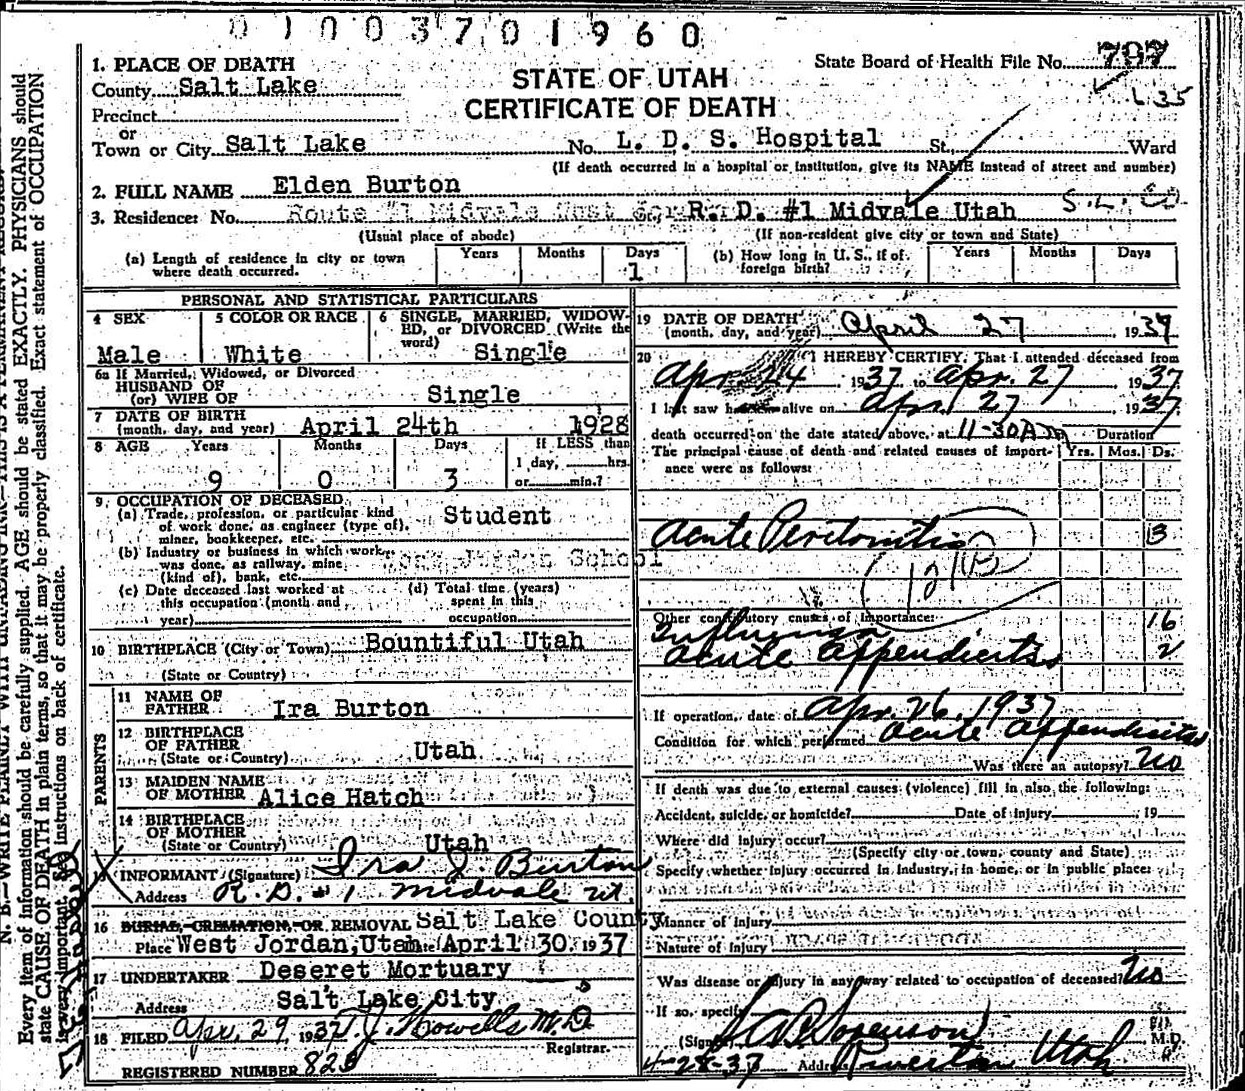 0 1 0 0 3 7 0 1 9 6 0
State Board of Health File No. 787
L 35
1. PLACE OF DEATH
STATE OF UTAH
CERTIFICATE OF DEATH
County Salt Lake
Precinct
or
Town or City Salt Lake No. L. D. S. Hospital St. Ward
(If death occurred in a hospital or institution, give its NAME instead of street and number)
2. FULL NAME Elden Burton
3. Residence: No. Route #1 Midvale West R. D. #1 Midvale Utah S. L. Co.
(Usual place of abode) (If non-resident give city or town and State)
(a) Length of residence in city or town where death occurred. Years Months Days 1
(b) How long in U. S., if of foreign birth? Years Months Days
PERSONAL AND STATISTICAL PARTICULARS
4 SEX Male
5 COLOR OR RACE White
6 SINGLE, MARRIED, WIDOWED, or DIVORCED (Write the word) Single
6a If Married, Widowed, or Divorced
HUSBAND OF
(or) WIFE OF Single
7 DATE OF BIRTH
(month, day, and year) April 24th 1928
8 AGE Years Months Days If LESS than
1 day, hrs.
9 0 3 or min.?
9 OCCUPATION OF DECEASED
(a) Trade, profession, or particular kind
of work done, as engineer (type of), Student
miner, bookkeeper, etc.
(b) Industry or business in which work
was done, as railway, mine West Jordan School
(kind of), bank, etc.
(c) Date deceased last worked at
this occupation (month and
year)
(d) Total time (years)
spent in this
occupation
10 BIRTHPLACE (City or Town) Bountiful Utah
(State or Country)
PARENTS
11 NAME OF
FATHER Ira Burton
12 BIRTHPLACE
OF FATHER Utah
(State or Country)
13 MAIDEN NAME
OF MOTHER Alice Hatch
14 BIRTHPLACE
OF MOTHER
(State or Country) Utah
INFORMANT (Signature) Ira J. Burton
Address R. D. #1 Midvale Ut.
16 BURIAL, CREMATION, OR REMOVAL Salt Lake County
Place West Jordan, Utah Date April 30. 1937
17 UNDERTAKER Deseret Mortuary
Address Salt Lake City
18 FILED Apr. 29, 1937 T. J. Howells M.D.
Registrar.
REGISTERED NUMBER 823
19 DATE OF DEATH
(month, day, and year) April 27 1937
20 I HEREBY CERTIFY, That I attended deceased from
Apr. 24 1937 to Apr. 27, 1937
I last saw h alive on Apr. 27, 1937
death occurred on the date stated above, at 11-30 A m Duration
The principal cause of death and related causes of importance were as follows: Yrs. Mos. Ds.
Acute Peritonitis 3
121B
Other contributory causes of importance:
Influenza 16
acute appendicitis 2
If operation, date of Apr. 26, 1937
Condition for which performed Acute Appendicitis
Was there an autopsy? No
If death was due to external causes (violence) fill in also the following:
Accident, suicide, or homicide? Date of injury 19
Where did injury occur?
(Specify city or town, county and State)
Specify whether injury occurred in industry, in home, or in public place:
Manner of Injury
Nature of Injury
Was disease or injury in any way related to occupation of deceased? No
If so, specify
(Signed) Sorenson M.D.
4-28-37 Address Riverton Utah
N. B.—WRITE PLAINLY WITH UNFADING INK—THIS IS A PERMANENT RECORD.
Every item of information should be carefully supplied. AGE should be stated EXACTLY. PHYSICIANS should
state CAUSE OF DEATH in plain terms, so that it may be properly classified. Exact statement of OCCUPATION
is very important. See instructions on back of certificate.